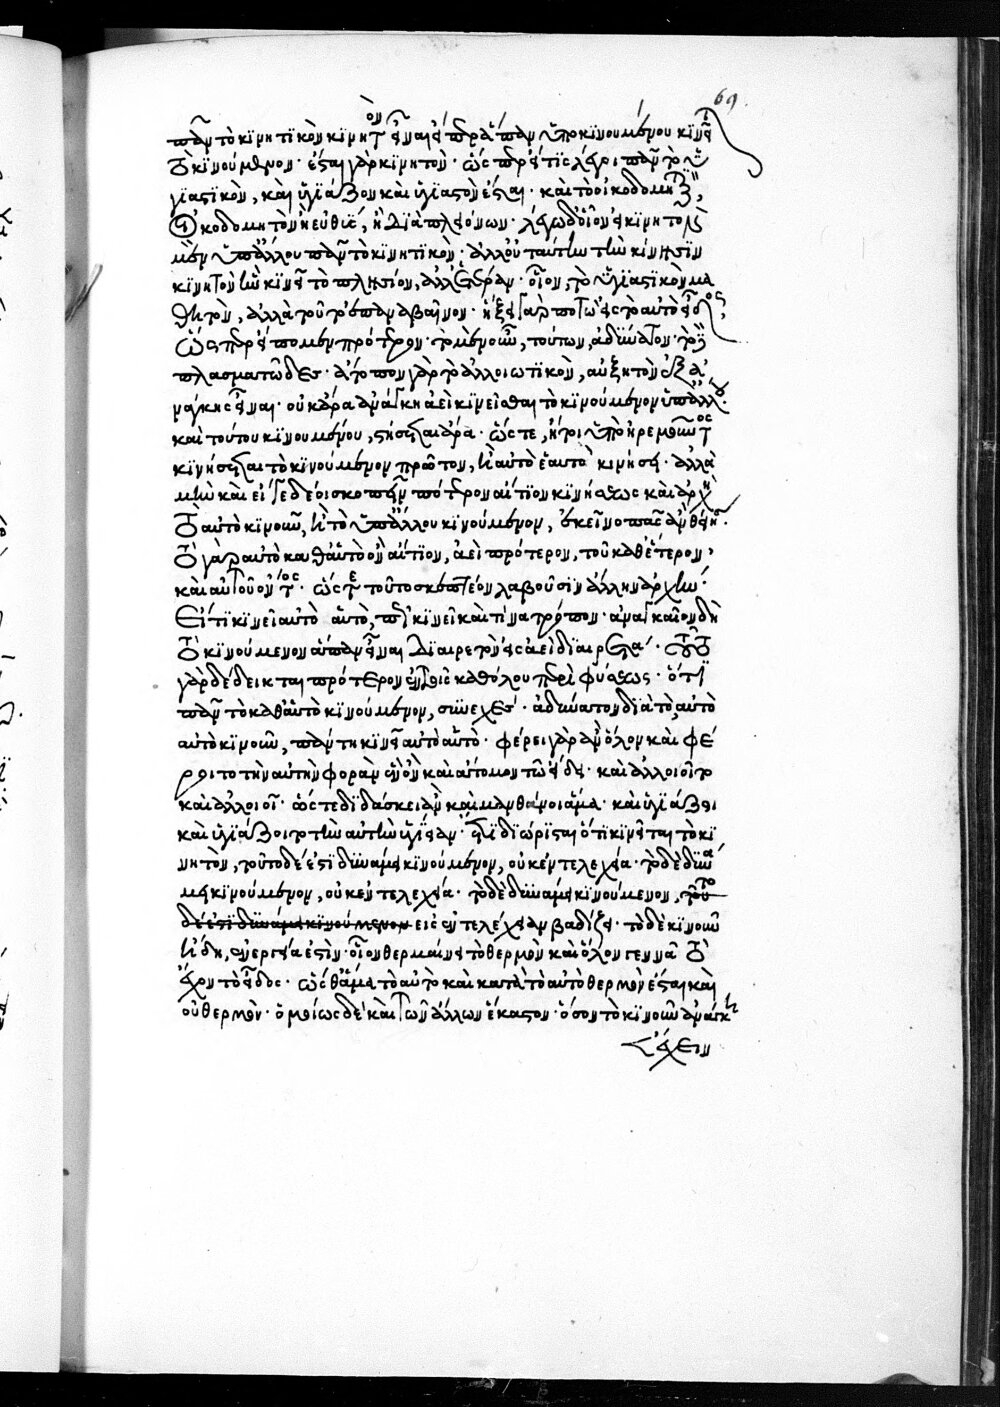 πᾶν τὸ κινητικὸν κινητὸν εἶναι εἴπερ ἅπαν ὑπὸ κινουμένου κινεῖται
τὸ κινούμενον· ἔσται γὰρ κινητόν· ὥσπερ εἴ τις λέγοι πᾶν τὸ ὑ
γιαστικὸν, καὶ ὑγιάζον καὶ ὑγιαστὸν ἔσται· καὶ τὸ οἰκοδομητικὸν,
οἰκοδομητὸν ἢ εὐθὺς, ἢ διὰ πλειόνων· λέγω δ' οἷον εἰ κινητὸν
μὲν ὑπ' ἄλλου πᾶν τὸ κινητικόν· ἀλλ' οὐ ταύτην τὴν κίνησιν
κινητὸν ἣν κινεῖ τὸ πλησίον, ἀλλ' ἑτέραν· οἷον, τὸ ὑγιαστικὸν μα
θητὸν, ἀλλὰ τοῦτο ἐπαναβαῖνον· ἥξει γάρ ποτε ὡς εἰς τὸ αὐτὸ εἶδος,
ὥσπερ εἴπομεν πρότερον· τὸ μὲν οὖν, τούτων, ἀδύνατον· τὸ δὲ
πλασματῶδες· ἄτοπον γὰρ τὸ ἀλλοιωτικὸν, αὐξητὸν ἐξ ἀ
νάγκης εἶναι· οὐκ ἄρα ἀνάγκη ἀεὶ κινεῖσθαι τὸ κινούμενον ὑπ' ἄλλου·
καὶ τούτου κινουμένου, στήσεται ἄρα· ὥστε, ἤτοι ὑπὸ ἠρεμοῦντος
κινήσεται τὸ κινούμενον πρῶτον, ἢ αὐτὸ ἑαυτὸ κινήσει· ἀλλὰ
μὴν καὶ εἴ γε δέοι σκοπεῖν πότερον αἴτιον κινήσεως καὶ ἀρχὴ
τὸ αὐτὸ κινοῦν, ἢ τὸ ὑπ' ἄλλου κινούμενον, ἐκεῖνο πᾶς ἂν θείη·
τὸ γὰρ αὐτὸ καθ' αὑτὸ ὂν αἴτιον, ἀεὶ πρότερον, τοῦ καθ' ἕτερον,
καὶ αὐτοῦ ὄντος· ὥστε τοῦτο σκεπτέον λαβοῦσιν ἄλλην ἀρχὴν·
Εἴ τι κινεῖ αὐτὸ αὑτὸ, πῶς κινεῖ καὶ τίνα τρόπον· ἀναγκαῖον δὴ
τὸ κινούμενον ἅπαν εἶναι διαιρετὸν εἰς ἀεὶ διαιρετά· τοῦτο
γὰρ δέδεικται πρότερον ἐν τοῖς καθόλου περὶ φύσεως· ὅτι
πᾶν τὸ καθ' αὑτὸ κινούμενον, συνεχές· ἀδύνατον διὰ τὸ, αὐτὸ
αὐτὸ κινοῦν, πάντη κινεῖν αὐτὸ αὑτό· φέρει γὰρ ἂν ὅλον καὶ φέ
ροιτο τὴν αὐτὴν φορὰν ἓν ὂν καὶ ἄτομον τῷ εἴδει· καὶ ἀλλοιοῖτο
καὶ ἀλλοιοῖ· ὥστε διδάσκει ἂν καὶ μανθάνοι ἅμα· καὶ ὑγιάζοι
καὶ ὑγιάζοιτο τὴν αὐτὴν ὑγίειαν· ἔτι διώρισται ὅτι κινεῖται τὸ κι
νητόν, τοῦτο δέ ἐστι δυνάμει κινούμενον, οὐκ ἐντελεχείᾳ· τὸ δὲ δυνά
μει κινούμενον, οὐκ ἐντελεχείᾳ· τὸ δὲ δυνάμει κινούμενον, τοῦτο
δέ ἐστι δυνάμει κινούμενον εἰς ἐντελέχειαν βαδίζει· τὸ δὲ κινοῦν
ἤδη, ἐνεργείᾳ ἐστίν· οἷον θερμαίνει τὸ θερμὸν καὶ ὅλον γεννᾷ τὸ
ἔχον τὸ εἶδος· ὥσθ' ἅμα τὸ αὐτὸ καὶ κατὰ τὸ αὐτὸ θερμὸν ἔσται καὶ
οὐ θερμόν· ὁμοίως δὲ καὶ τῶν ἄλλων ἕκαστον· ὅσον τὸ κινοῦν ἀνάγκη
ἔχειν